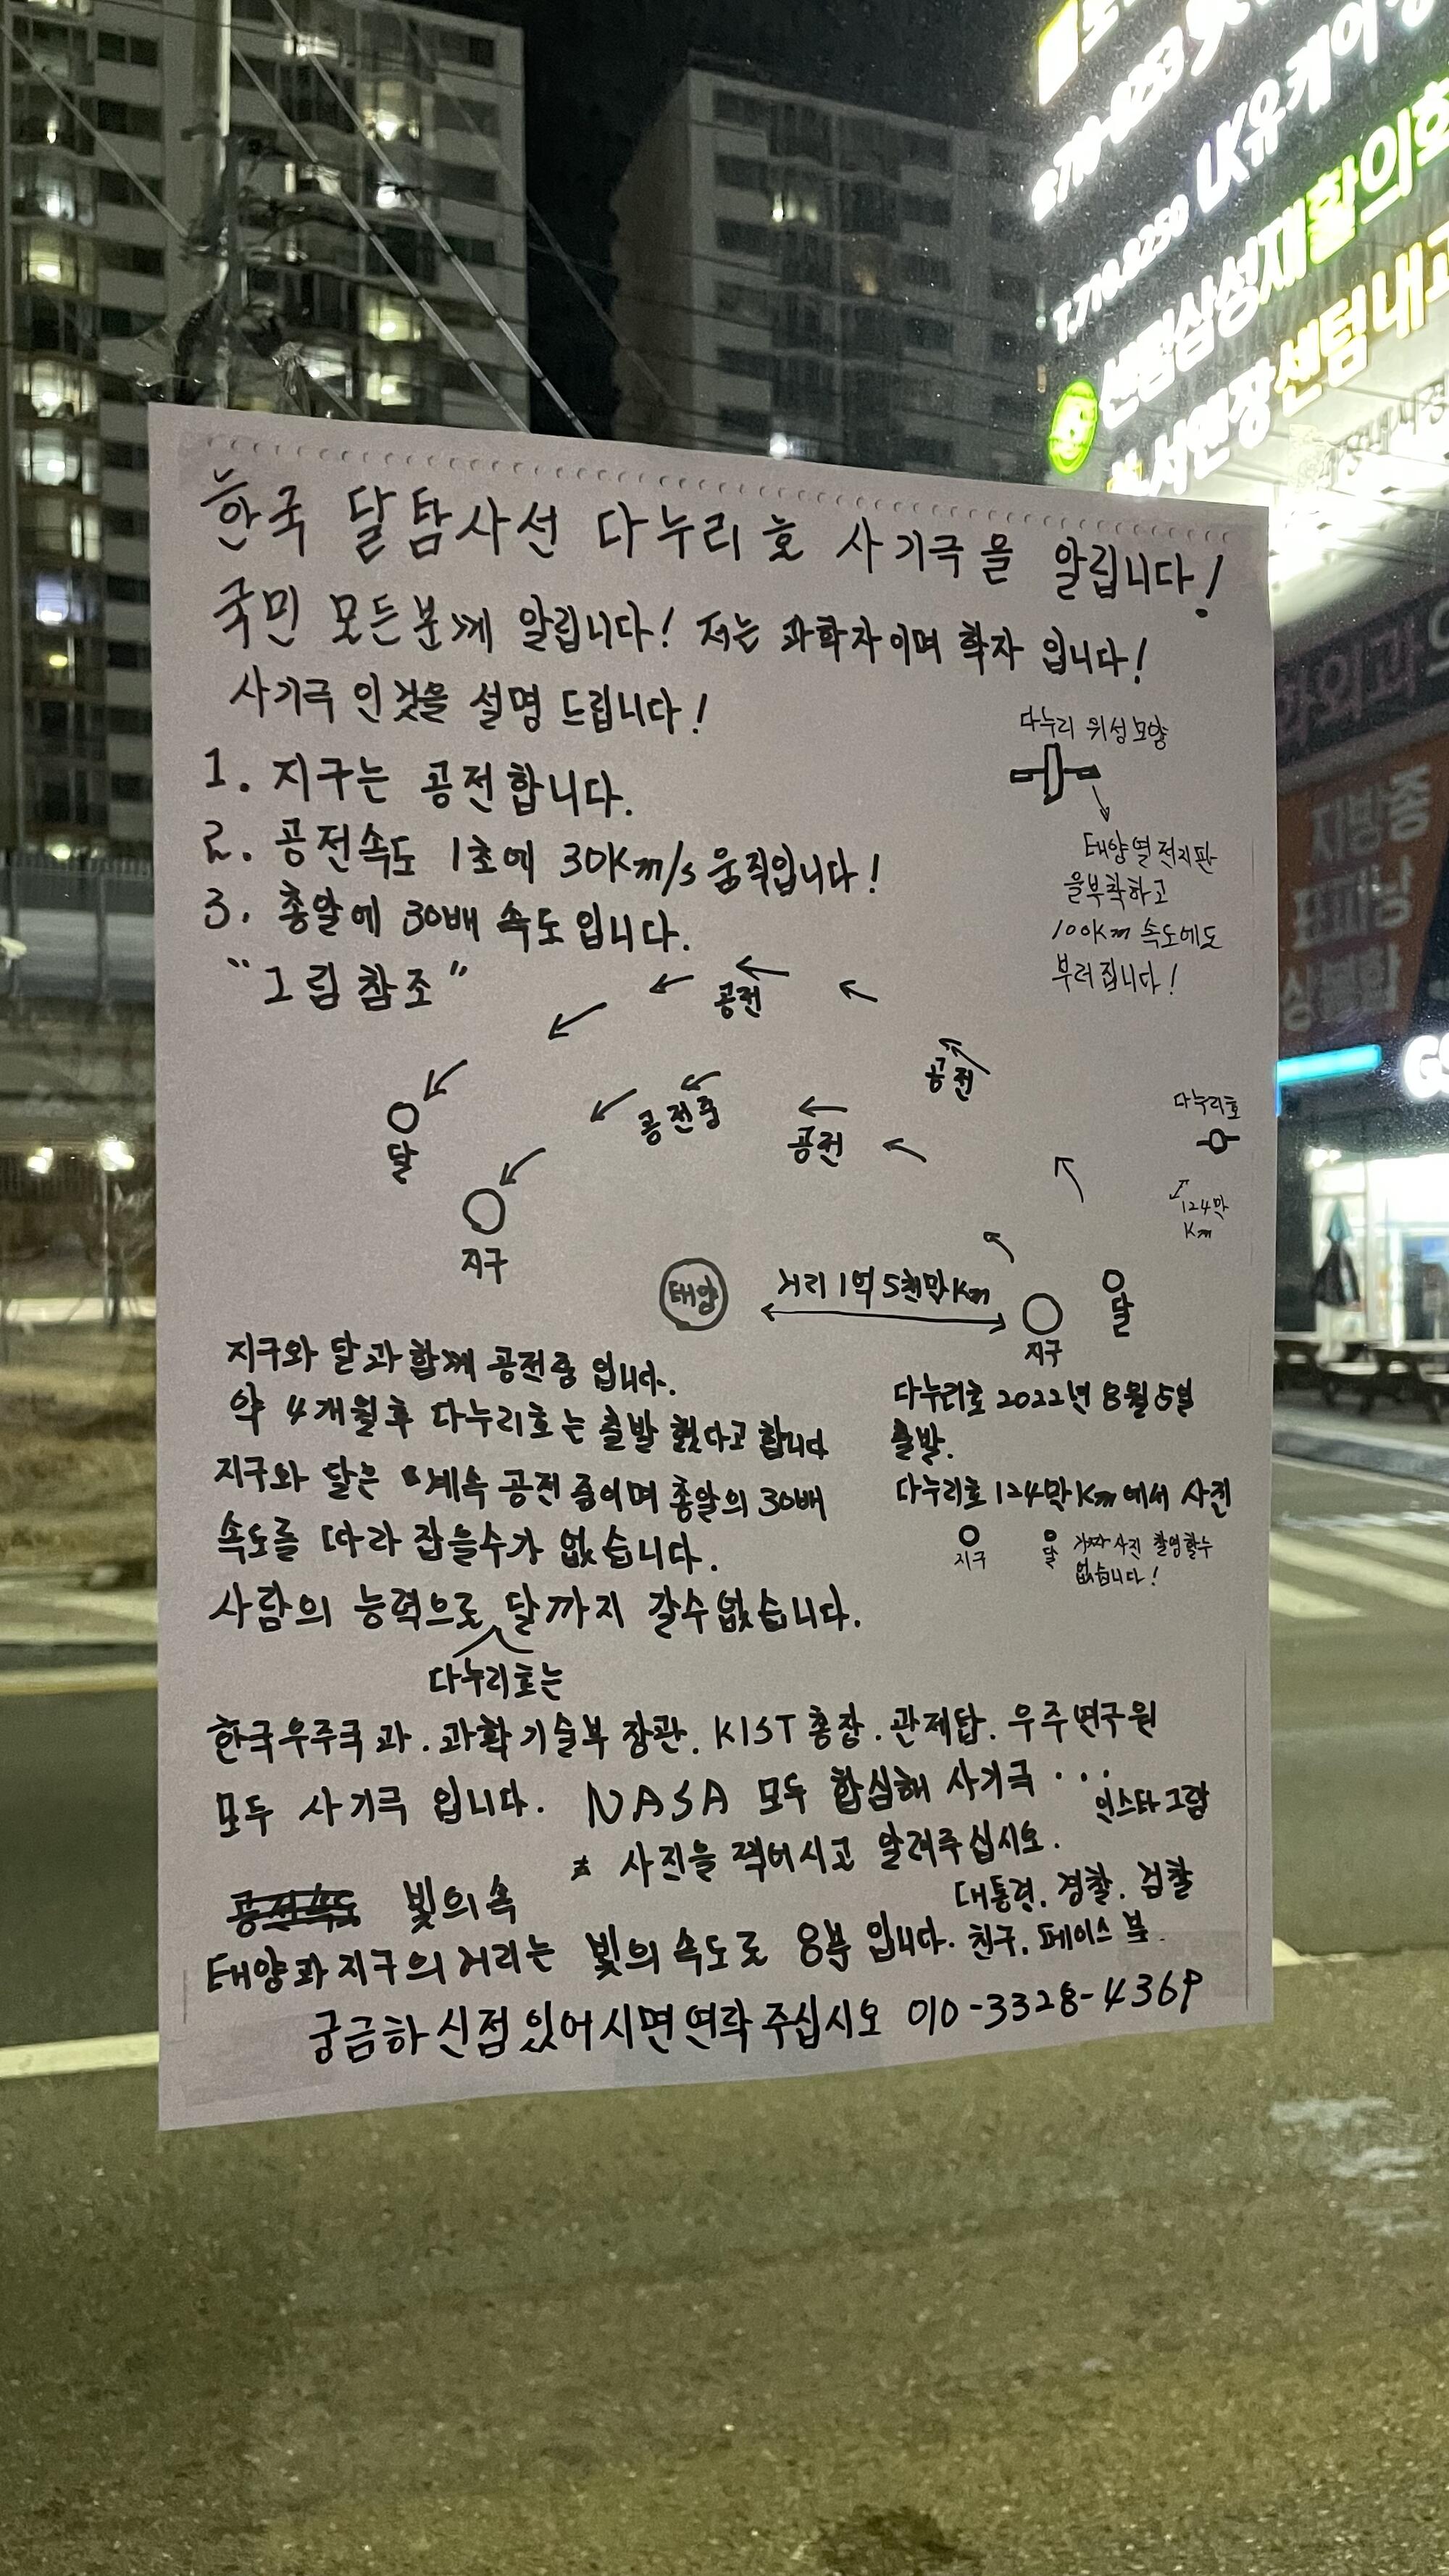 T.710-8250 LK유케어
센텀삼성재활의학
서연장센텀내과
외과
GS
한국 달탐사선 다누리호 사기극을 알립니다!
국민 모든분께 알립니다! 저는 과학자이며 학자 입니다!
사기극 인것을 설명 드립니다!
1. 지구는 공전합니다.
2. 공전속도 1초에 30Km/s 움직입니다!
3. 총알에 30배 속도입니다.
"그림참조"
다누리 위성모양
태양열 전지판
을부착하고
100Km 속도에도
부러집니다!
공전
공전
공전중
공전
달
지구
태양
거리 1억 5천만Km
지구
달
다누리호
124만
Km
지구와 달과 함께 공전중 입니다.
약 4개월후 다누리호는 출발 했다고 합니다
지구와 달은 계속 공전 중이며 총알의 30배
속도를 따라 잡을수가 없습니다.
사람의 능력으로 달까지 갈수없습니다.
다누리호는
다누리호 2022년 8월 5일
출발.
다누리호 124만Km에서 사진
지구
달
가짜사진 촬영할수
없습니다!
한국우주국과. 과학기술부 장관. KIST 총장. 관제탑. 우주연구원
모두 사기극 입니다. NASA 모두 합심해 사기극...
* 사진을 찍어시고 알려주십시오.
인스타그람
대통령. 경찰. 검찰
친구. 페이스 북.
공전속도 빛의속
태양과지구의거리는 빛의속도로 8분 입니다.
궁금하신점있어시면연락주십시오 010-3328-4369